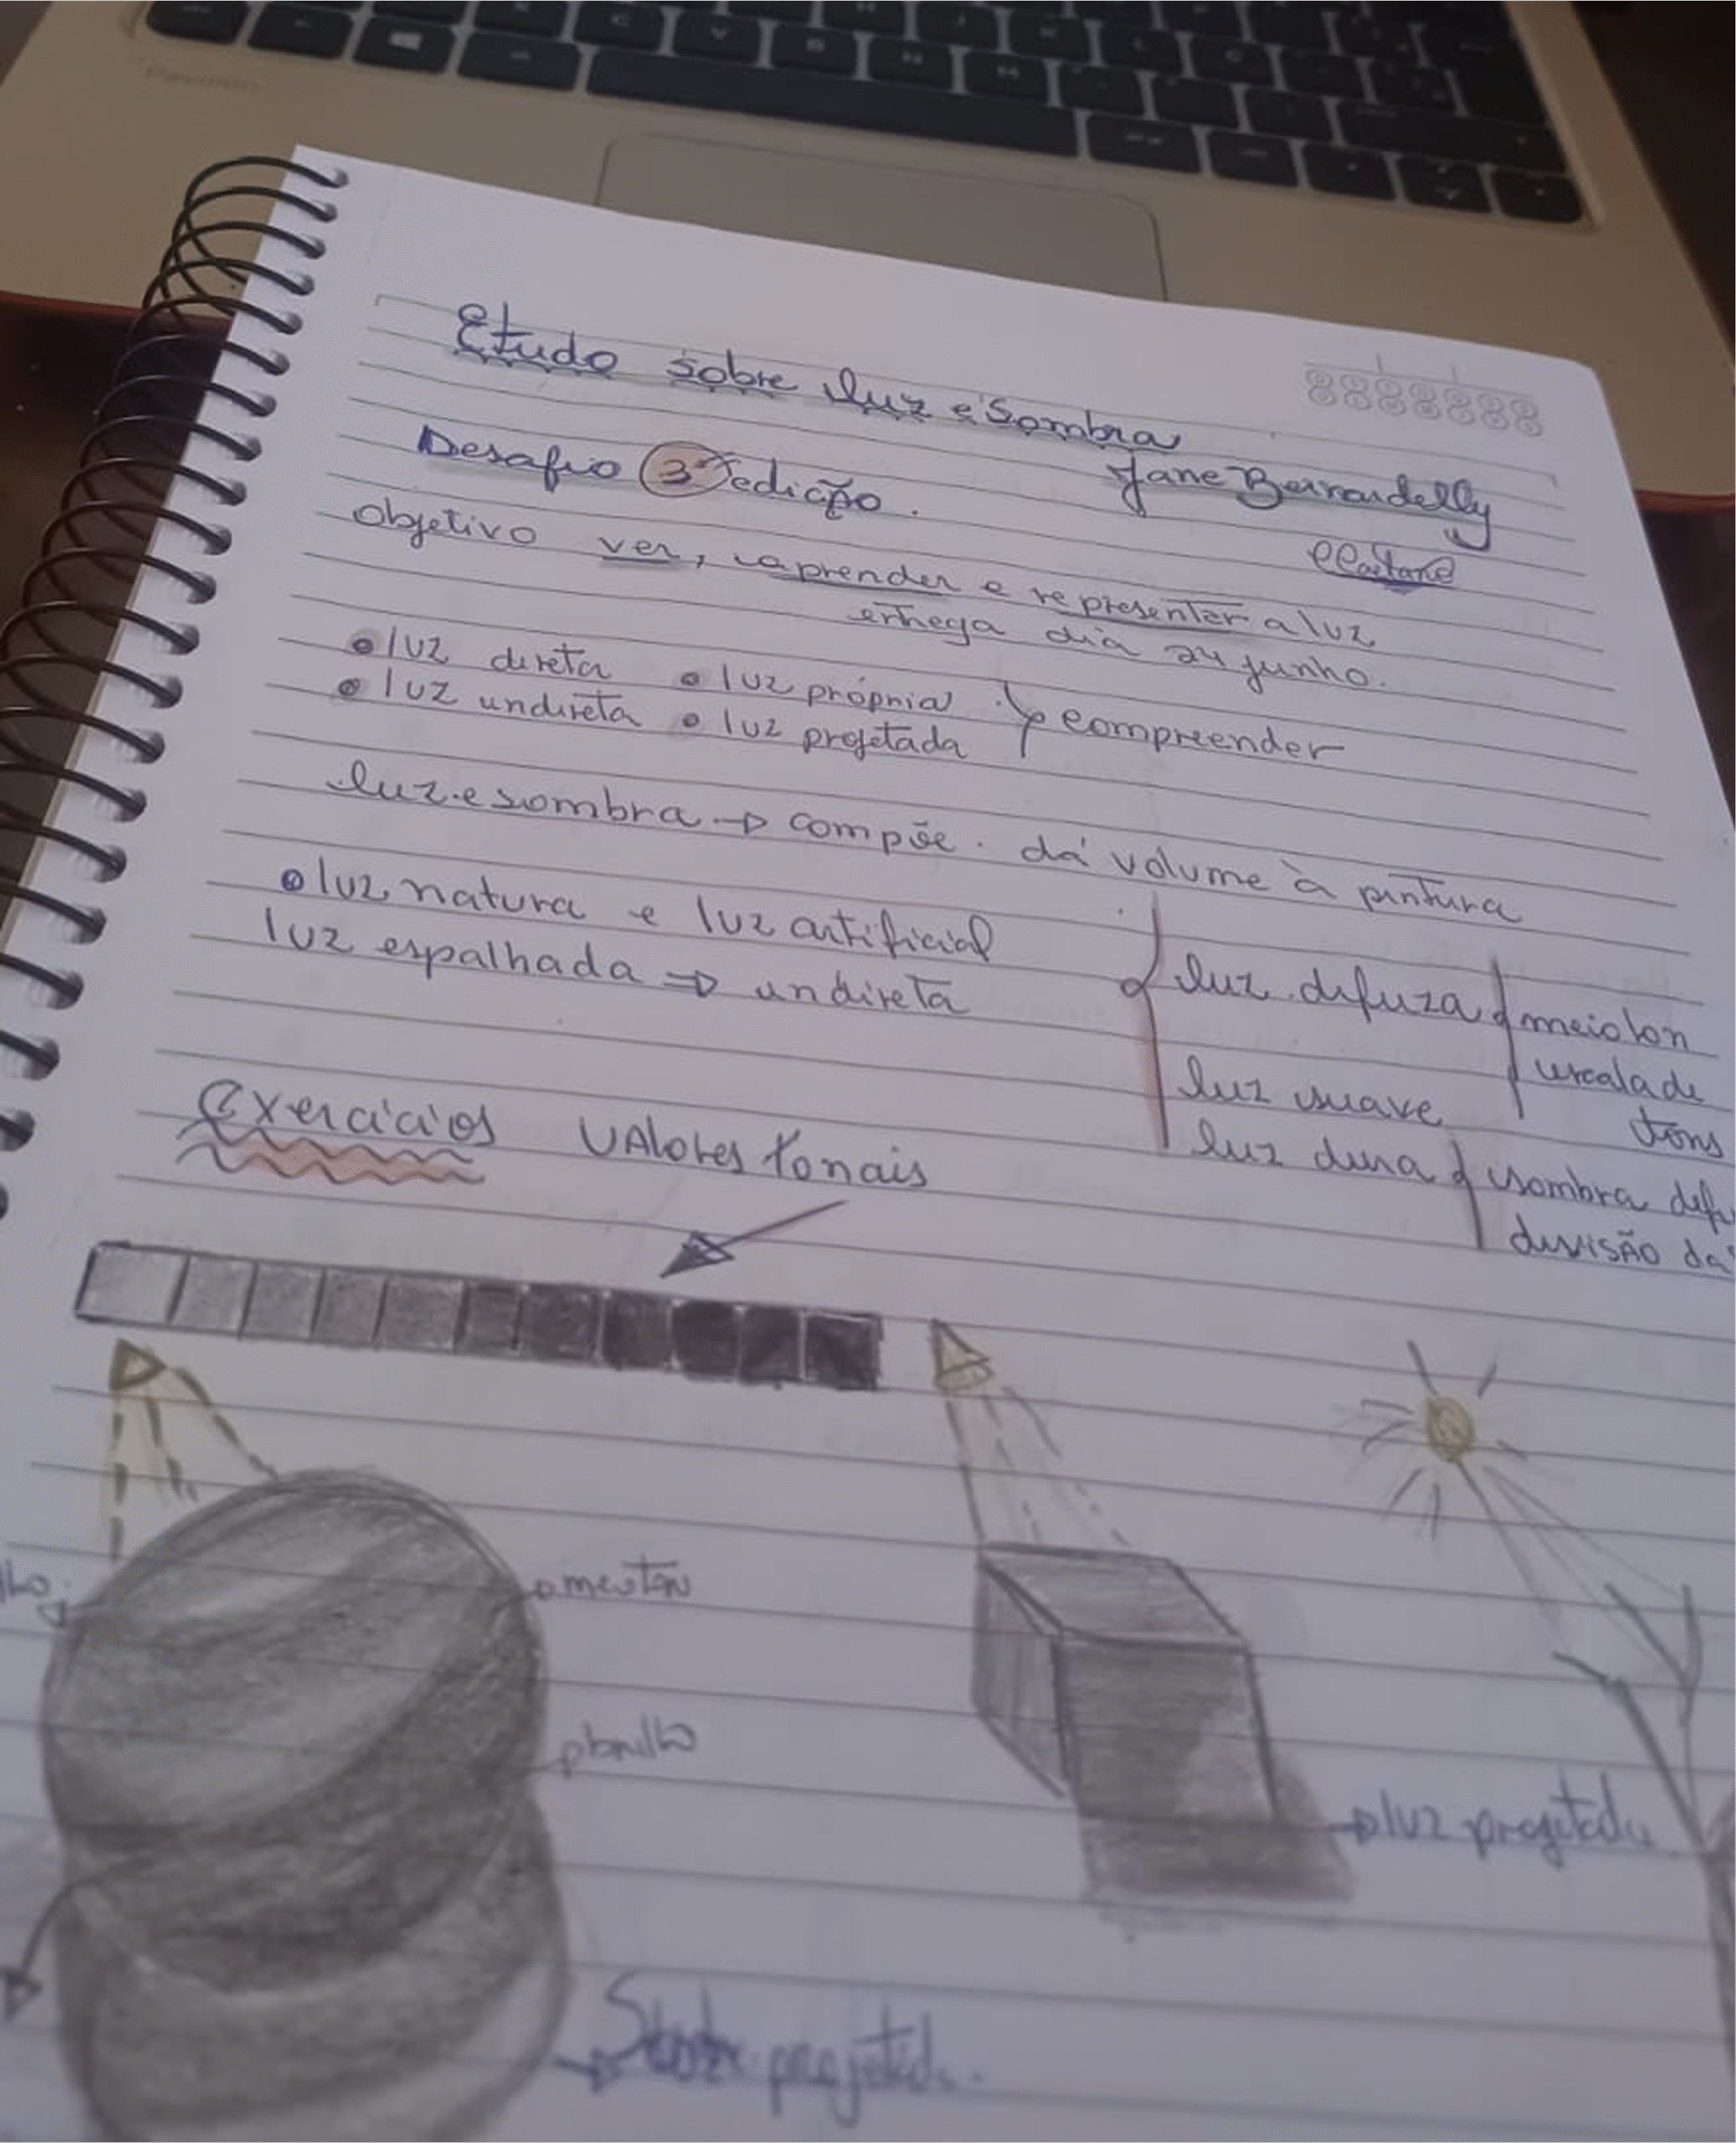 Etudo sobre luz e Sombra
Desafio 3ª edição.
Jane Berrardelly
objetivo ver, aprender e representar a luz
entrega dia 24 junho.
luz direta
luz própria
compreender
luz undireta
luz projetada
luz e sombra → compõe. dá volume à pintura
luz natura e luz artificial
luz espalhada ⇒ undireta
luz difuza
meio ton
escala de
tons
luz suave
luz dura
sombra
divisão da
Exercícios Valores tonais
meoton
brilho
luz projetada
projetad
Pavilion